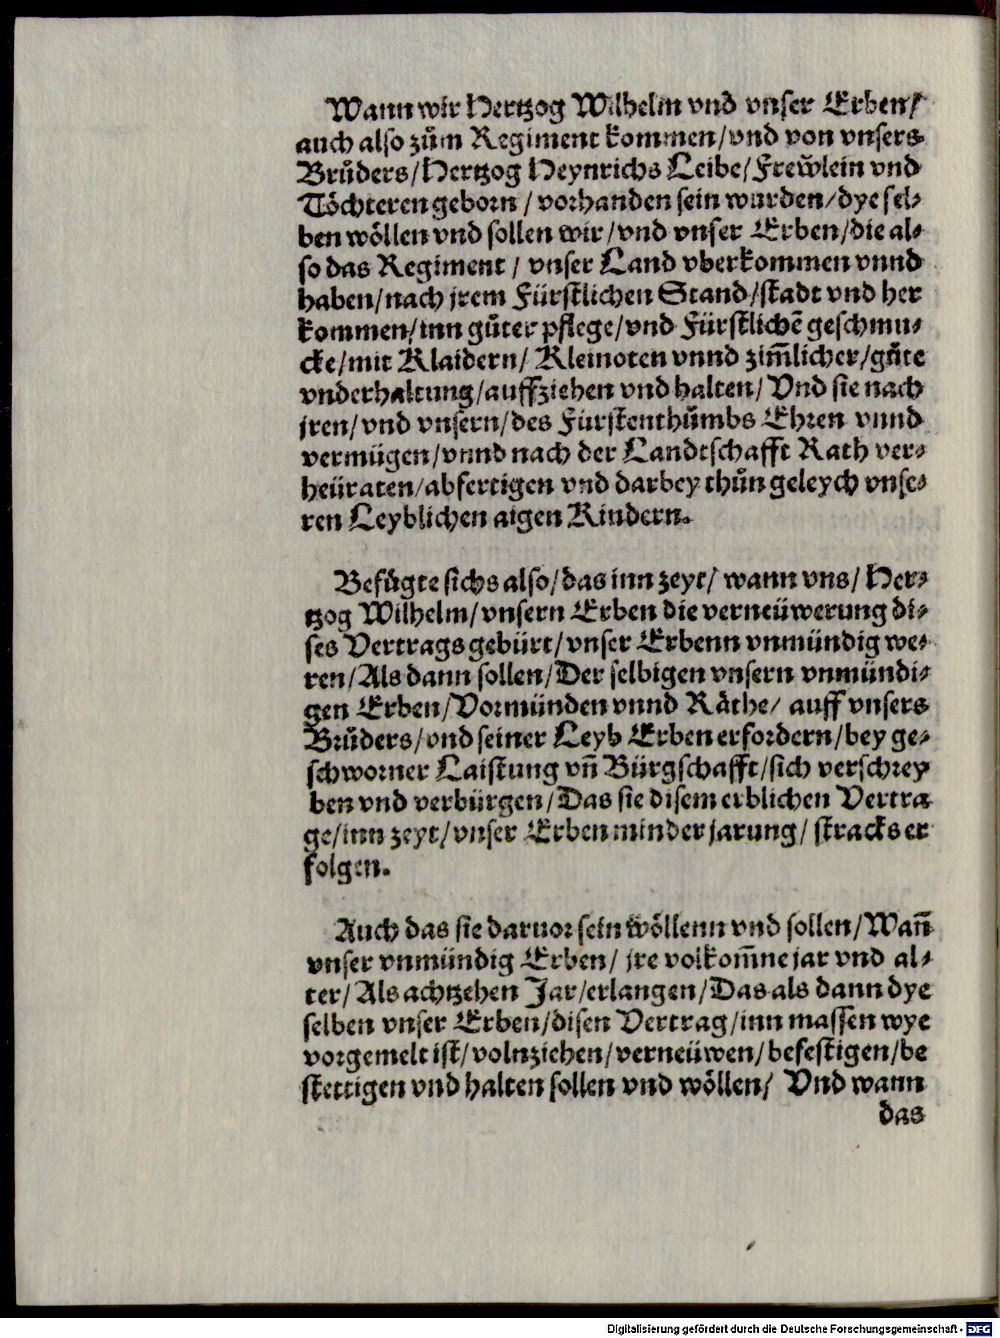 Wann wir Hertzog Wilhelm vnd vnser Erben/
auch also zům Regiment kommen/vnd von vnsers
Brůders/Hertzog Heynrichs Leibe/Frew̃lein vnd
Töchteren geborn/ vorhanden sein wurden/dye sel-
ben wöllen vnd sollen wir/vnd vnser Erben/die al-
so das Regiment/ vnser Land vberkommen vnnd
haben/nach jrem Fürstlichen Stand/stadt vnd her
kommen/inn gůter pflege/vnd Fürstlichẽ geschmu-
cke/mit Klaidern/ Kleinoten vnnd zim̃licher/gůte
vnderhaltung/auffziehen vnd halten/ Vnd sie nach
jren/vnd vnsern/des Fürstenthůmbs Ehren vnnd
vermügen/vnnd nach der Landtschafft Rath ver-
heüraten/abfertigen vnd darbey thůn geleych vnse-
ren Leyblichen aigen Kindern.
Befůgte sichs also/das inn zeyt/ wann vns/ Her-
tzog Wilhelm/vnsern Erben die verneüwerung di-
ses Vertrags gebürt/vnser Erbenn vnmündig we-
ren/Als dann sollen/Der selbigen vnsern vnmündi-
gen Erben/Vormünden vnnd Räthe/ auff vnsers
Brůders/vnd seiner Leyb Erben erfordern/bey ge-
schworner Laistung vn̄ Bürgschafft/sich verschrey
ben vnd verbürgen/Das sie disem erblichen Vertra
ge/inn zeyt/vnser Erben minder jarung/ stracks er
folgen.
Auch das sie daruor sein wöllenn vnd sollen/Wan̄
vnser vnmündig Erben/ jre volkom̄ne jar vnd al-
ter/Als achtzehen Jar/erlangen/Das als dann dye
selben vnser Erben/disen Vertrag/inn massen wye
vorgemelt ist/volnziehen/verneüwen/befestigen/be
stettigen vnd halten sollen vnd wöllen/ Vnd wann
das
Digitalisierung gefördert durch die Deutsche Forschungsgemeinschaft - DFG